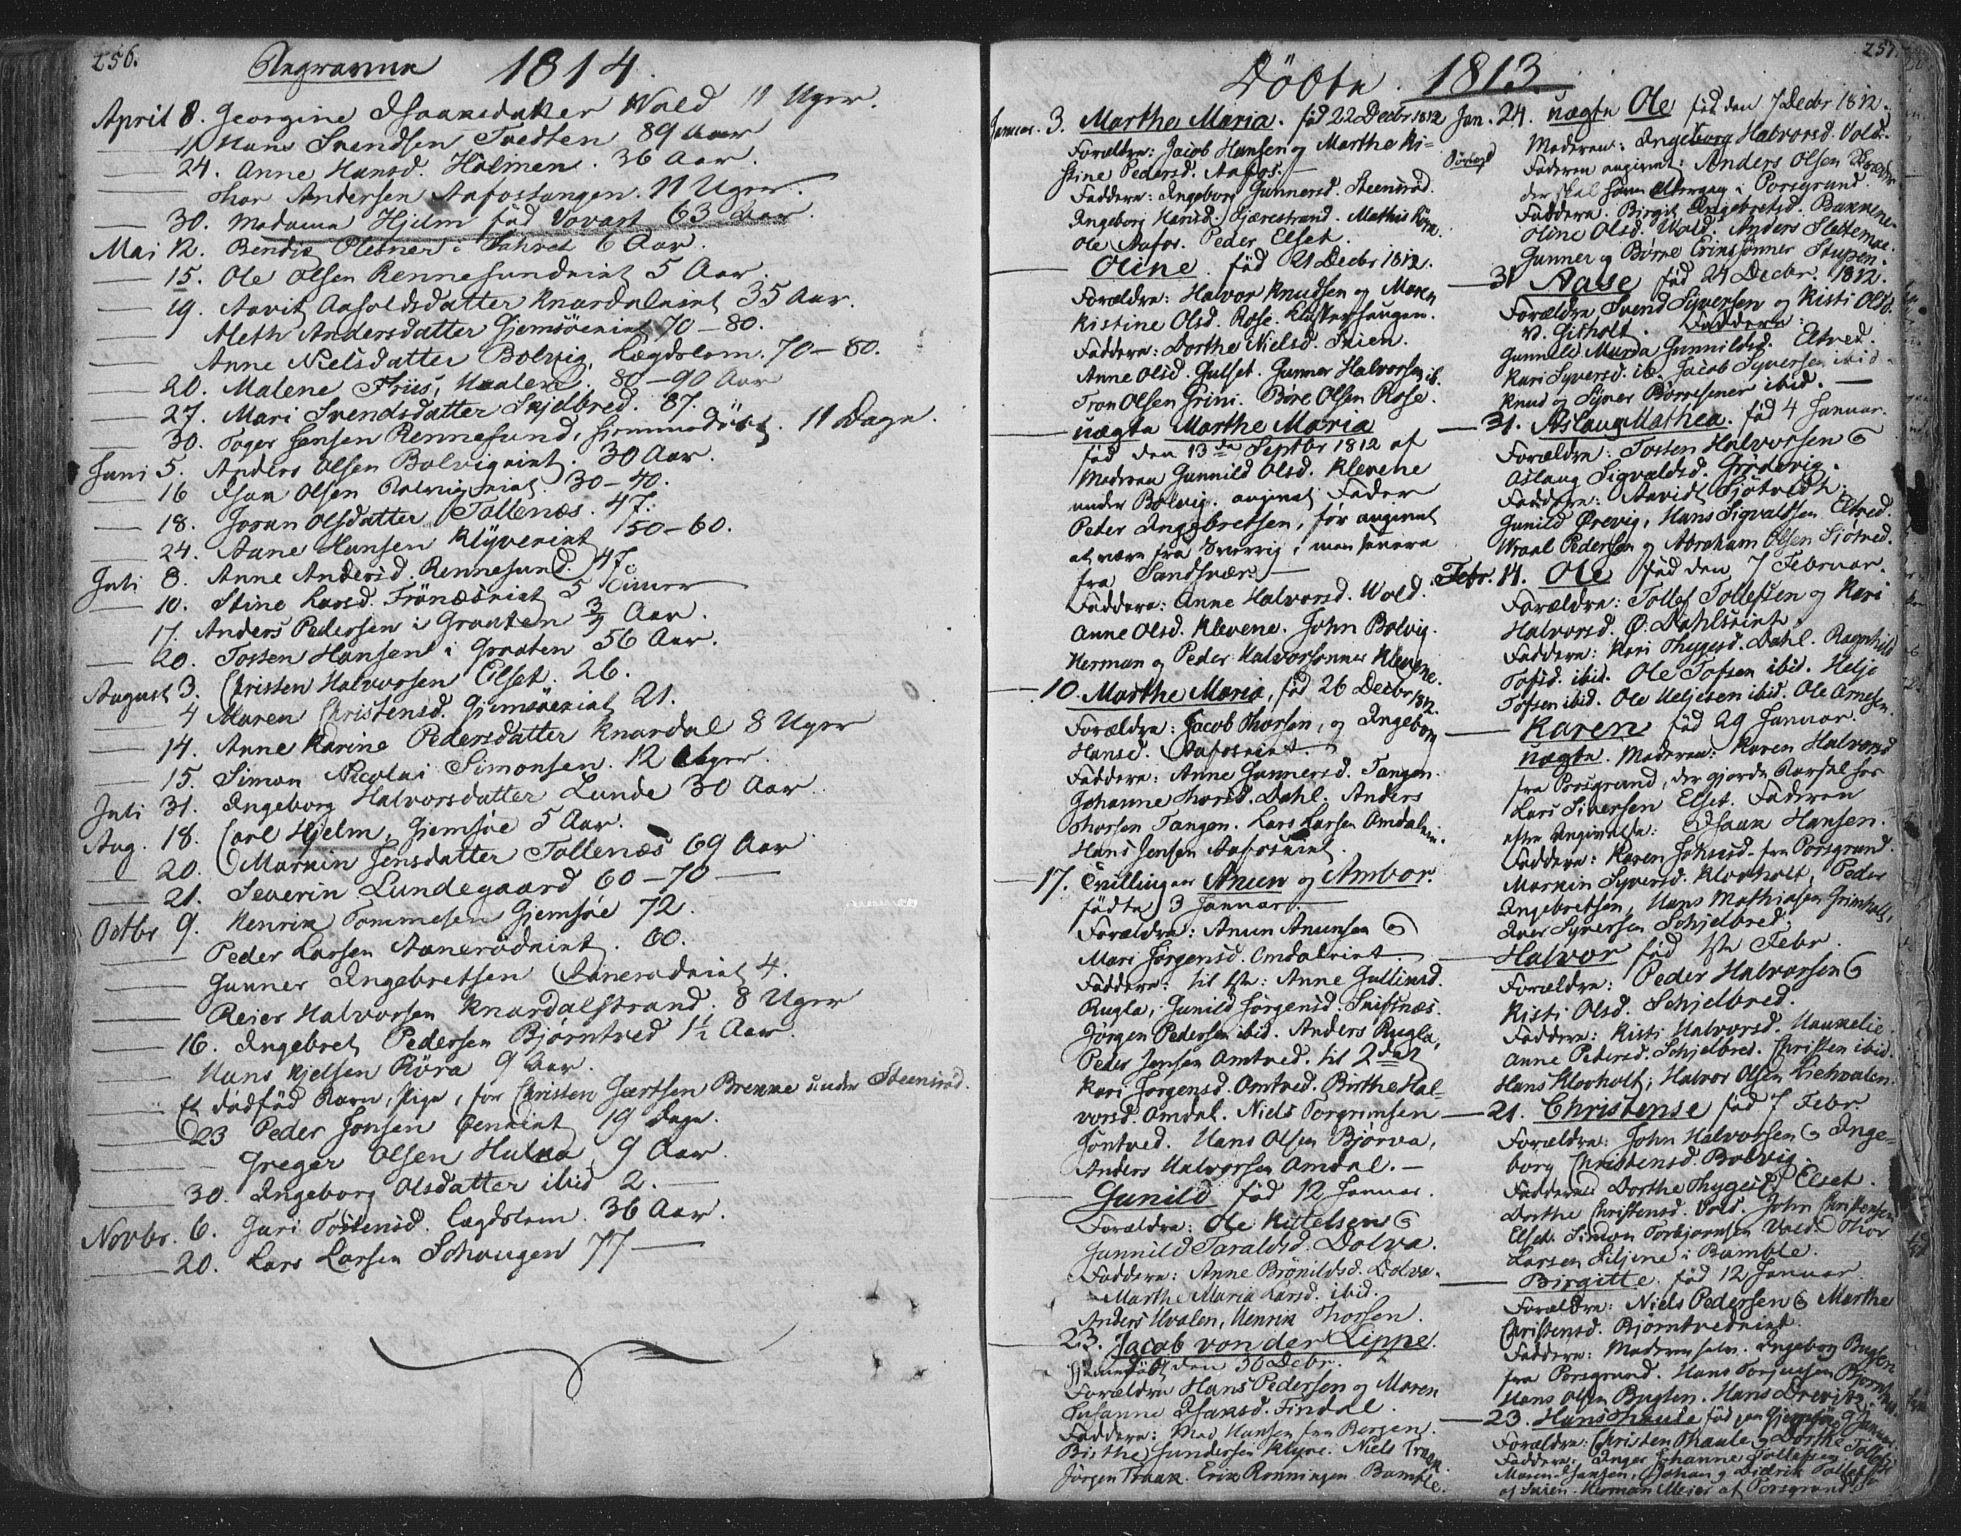 256.
Begravne 1814.
April 8. Georgine Isaaksdatter Wold 11 Uger.
— 11 Hans Svendsen Tvedten 89 Aar
— 24. Anne Hansd. Holmen. 36 Aar.
Thor Andersen Aafostangen. 11 Uger.
— 30. Madame Hjelm fød Vovart 63 Aar.
Mai 12. Bendix Plesner i Fahret 6 Aar.
— 15. Ole Olsen Rennesundeiet 5 Aar.
— 19. Aavit Aasoldsdatter Knardaleiet 35 Aar.
Aleth Andersdatter Gjemsøeeiet 70-80.
Anne Nielsdatter Bolvig, Lægdslem. 70-80.
— 20. Malene Friis, 80-90 Aar
— 27. Mari Svendsdatter Skjelbred. 87.
— 30. Toger Hansen Rennesund, hjemmedøbt. 11 Dage.
Juni 5. Anders Olsen Bolvigeiet. 30 Aar.
— 16 Isak Olsen Bolvigeiet. 30-40.
— 18. Joran Olsdatter Tollenæs. 47.
— 24. Aane Hansen Klyveeiet 50-60.
Juli 8. Anne Andersd. Rennesund. 47.
— 10. Stine Larsd. Frönæseiet 5 Timer
17. Anders Pedersen i Graaten 3/4 Aar.
— 20. Tosten Hansen i Graaten 56 Aar.
August 3. Christen Halvorsen Elset. 26.
— 4 Maren Christensd. Gjemsøeeiet 21.
— 14. Anne Karine Pedersdatter Knardal 8 Uger
— 15. Simon Nicolai Simonsen. 12 Uger.
Juli 31. Ingeborg Halvorsdatter Lunde 30 Aar
Aug. 18. Carl Hjelm, Gjemsøe 5 Aar.
— 20. Markin Jensdatter Tollenæs 69 Aar
— 21. Severin Lundegaard 60-70 —
Octbr 9. Henrik Tommesen Gjemsøe 72.
— Peder Larsen Aanerødeiet. 60.
— Gunner Ingebretsen Aanerødeiet 4.
— Reier Halvorsen Knardalstrand. 8 Uger
— 16. Ingebret Pedersen Bjørntved 1½ Aar.
— Hans Kjelsen Röra 9 Aar.
— Et dødfød Barn, Pige, for Christen Gjertsen Brenne under Steensrød.
— 23 Peder Jonsen 19 Dage.
— Greger Olsen Hulka, 9 Aar.
— 30. Ingeborg Olsdatter ibid 2. —
Novbr. 6. Guri Tostensd. Lægdslem. 36 Aar.
— 20. Lars Larsen Schougen 77 —
257.
Döbte 1813.
Januar. 3. Marthe Maria. fød 22 Decbr 1812
Forældre: Jacob Hansen og Marthe Ki-
stine Pedersd. Aafos. —
Faddere: Ingeborg Gunnersd. Steensrød.
Ingeborg Hansd. Gjærestrand. Mathis
Ole Aafos. Peder Elset.
— Oline. fød 21 Decbr 1812.
Forældre: Halvor Knudsen og Maren
Kistine Olsd. Rose. Klosterhaugen.
Faddere: Dorthe Nielsd. Skien.
Anne Olsd. Gulset. Gunner Halvorsen ib.
Tron Olsen Grini. Børe Olsen Rose.
— uægte Marthe Maria
fød den 13de Septbr 1812 af
Moderen Gunnild Olsd. Klevene
under Bolvig. angivet Fader
Peder Ingebretsen, før angivet
at være fra Sverrig, men senere
fra Sandsvær. —
Faddere: Anne Halvorsd. Wold.
Anne Olsd. Klevene. John Bolvig.
Herman og Peder Halvorsønner Klevene.
— 10. Marthe Maria, fød 26 Decbr 1812.
Forældre: Jacob Thorsen, og Ingeborg
Hansd. Aafoseiet —
Faddere: Anne Gunnersd. Tangen.
Johanne Thorsd. Dahl. Anders
Thorsen Tangen. Lars Larsen Amdalen.
Hans Jensen Aafoseiet.
— 17. Tvillinger Anun og Ambor.
fødte 3 Januar. —
Forældre: Anun Anunsen og
Mari Jörgensd. Omdaleiet —
Faddere: til 1ste: Anne Gulliksd.
Rugla, Gunild Jörgensd. Skifsnæs.
Jörgen Pedersen ibid. Anders Rugla,
Peder Jensen Amtved. til 2den
Kari Jorgensd. Amtved. Birthe Hal-
vorsd. Amdal. Niels Torgrimsen
Jöntved. Hans Olsen Björva,
Anders Halvorsen Amdal. —
— Gunild fød 12 Januar.
Forældre: Ole Kittelsen og
Gunnild Taraldsd. Dolva.
Faddere: Anne Brönildsd. Dolva.
Marthe Maria Larsd. ibid.
Anders Hvalen, Henrik Thorsen.
— 23. Jacob von der Lippe.
hjemmedöbt den 30 Decbr.
Forældre Hans Pedersen og Maren
Susanne Isaksd. Findal.
Faddere: Mad. Hansen fra Bergen.
Birthe Gundersen Klyve. Niels Traak
Jörgen Traak. Erik Rönningen Bamble.
Jan. 24. uægte Ole fød den 7 Decbr 1812.
Moderen: Ingeborg Halvorsd. Vold.
Faderen angivet: Anders Olsen
der skal have Ophold i Porsgrund.
Faddere. Birgit Ingebretsd. Bakkene.
Oline Olsd. Wold. Anders Slettene.
Gunner og Börre Eriksönner Stupen.
— 31 Aase fød 24 Decbr. 1812.
Forældre Svend Syversen og Kisti Olsd.
V. Gisholt. Faddere:
Gunnild Marda Gunnildsd. Eltved.
Kari Syversd. ib. Jacob Syversen ibid.
Knud og Syver Börresener ibid. —
— 31. Aslaug Mathea. fød 4 Januar.
Forældre: Tosten Halvorsen og
Aslaug Sigvaldsd. Grödevig.
Faddere: Aavid Sjötvedt.
Gunild Ørevig, Hans Sigvaldsen Eltved.
Wraal Pedersen og Abraham Olsen Sjötved.
Febr. 14. Ole fød den 7 Februar.
Forældre: Tollef Tollefsen og Kari
Halvorsd. Ö. Dahlseiet.
Faddere: Kari Thygesd. Dahl. Ragnhild
Tofsd. ibid. Ole Tofsen ibid. Helje
Tofsen ibid. Ole Heljesen ibid. Ole Arnesen.
— Karen fød 29 Januar.
uægte. Moderen: Karen Halvorsd
fra Porsgrund, der gjorde Barsel hos
Lars Siversen Elset. Faderen
efter Angivelse: Isaak Hansen.
Faddere: Karen Johnsd. fra Porsgrund.
Markin Syversd. Klovholt, Peder
Ingebretsen, Hans Mathiasen Grimholt,
Iver Syversen Schjelbred.
— Halvor fød 1ste Febr.
Forældre: Peder Halvorsen og
Kisti Olsd. Schjelbred.
Faddere: Kisti Halvorsd. Haukelie.
Anne Pedersd. Schjelbred. Christen ibid.
Hans Klovholt, Halvor Olsen Liehvalen.
— 21. Christense fød 7 Febr.
Forældre: John Halvorsen og Inge-
borg Christensd. Bolvig.
Faddere: Dorthe Thygesd. Elset.
Dorthe Christensd. Vold. John Christensen
Elset. Simon Torbjornsen Vold. Thor
Larsen Liljene i Bamble.
— Birgitte. fød 12 Januar.
Forældre: Niels Pedersen og Marthe
Christensd. Bjorntvedeiet.
Faddere: Moderen selv. Ingeborg Buglen
fra Porsgrund. Hans Torjussen Bjorntved.
Hans Olsen Buglen. Hans Örevik.
— 23. Hans Thaule fød paa Gjemsöe 9 Januar.
Forældre: Christen Thaule og Dorthe
Faddere: Inger Johanne Tollefsen
Maren Hansen, Johan og Didrik
af Skien. Herman Meier af Porsgrund.